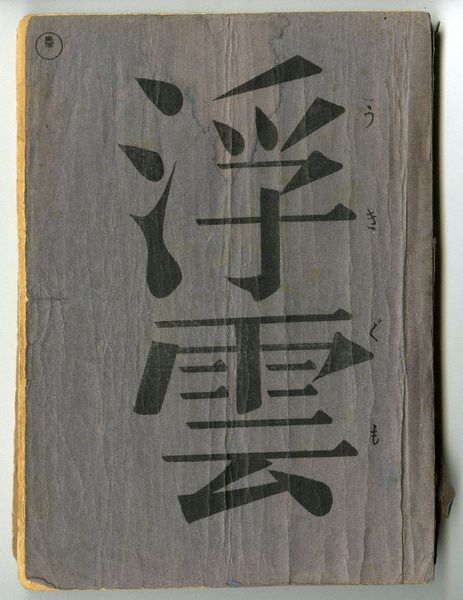 浮雲
うきぐも